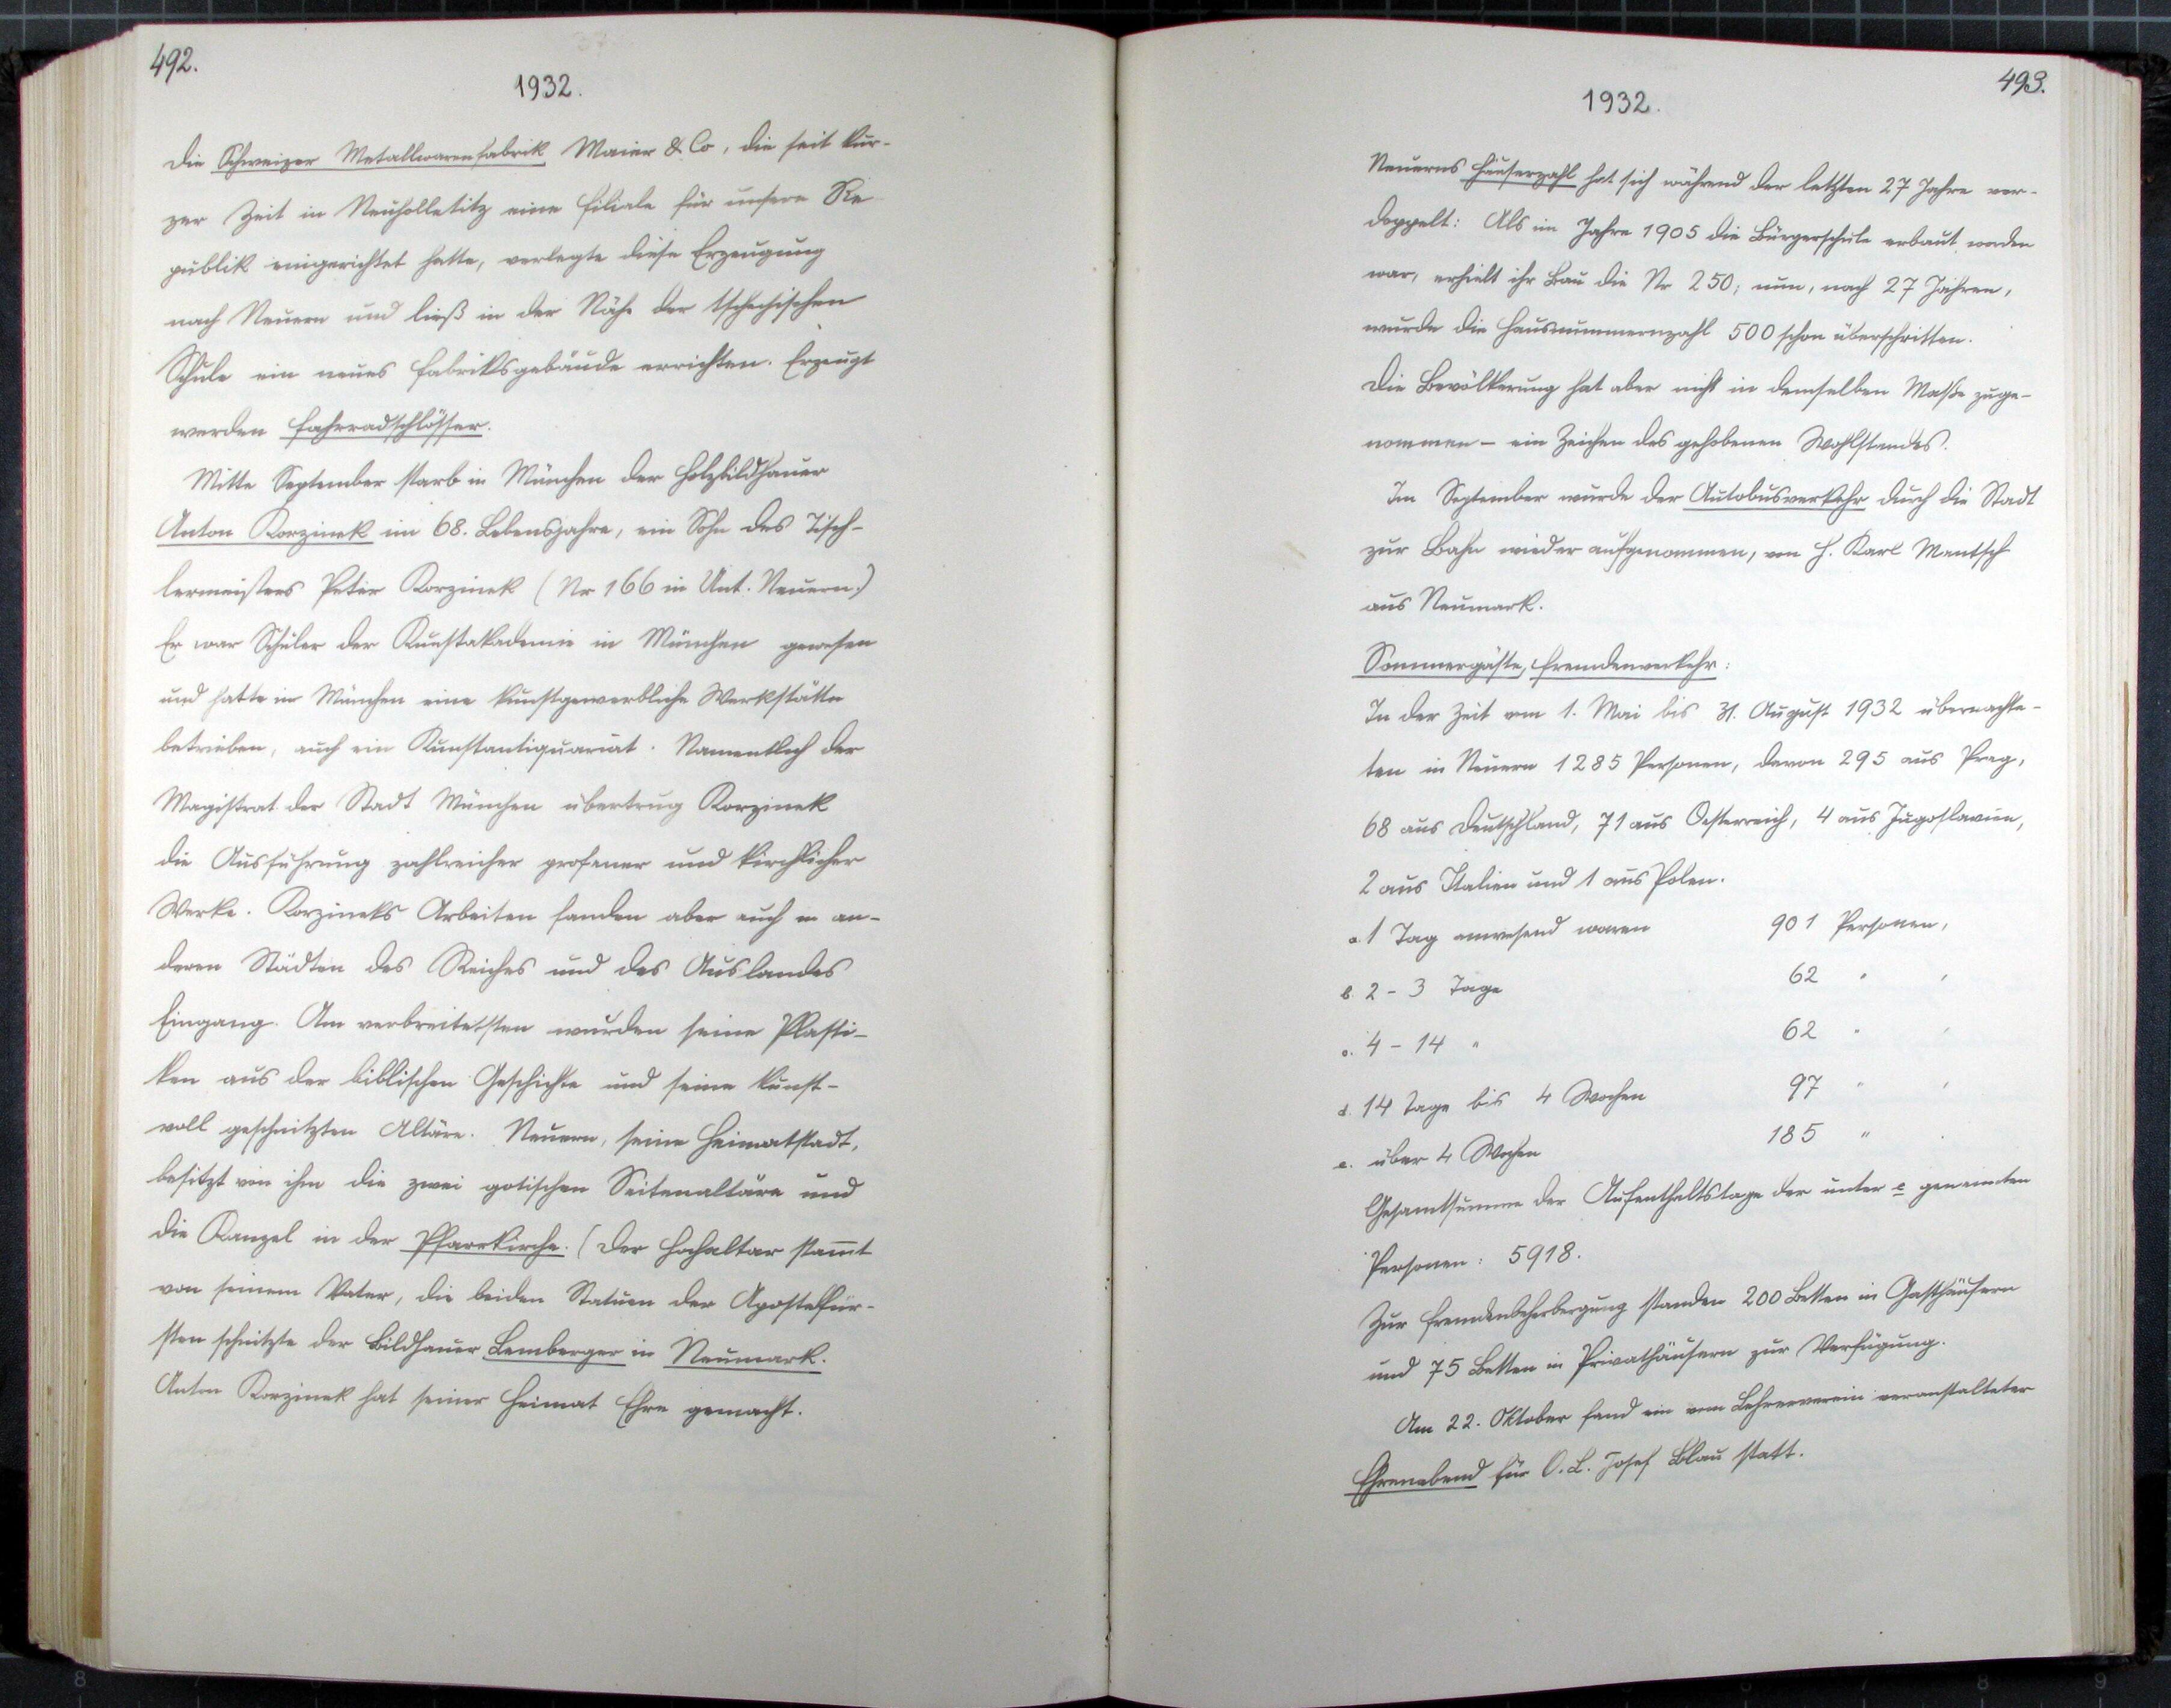 492.
1932.
Die Schweizer Metallwarenfabrik Maier & Co, die seit kur-
zer Zeit in Neuholletitz eine Filiale für unsere Re-
publik eingerichtet hatte, verlegte diese Erzeugung
nach Neuern und ließ in der Nähe der tschechischen
Schule ein neues Fabriksgebäude errichten. Erzeugt
werden Fahrradschlösser.
Mitte September starb in München der Holzbildhauer
Anton Korzinek im 68. Lebensjahre, ein Sohn des Tisch-
lermeisters Peter Korzinek (Nr 166 in Unt. Neuern.)
Er war Schüler der Kunstakademie in München gewesen
und hatte in München eine kunstgewerbliche Werkstätte
betrieben, auch ein Kunstantiquariat. Namentlich der
Magistrat der Stadt München übertrug Korzinek
die Ausführung zahlreicher profaner und kirchlicher
Werke. Korzineks Arbeiten fanden aber auch in an-
deren Städten des Reiches und des Auslandes
Eingang. Am verbreitetsten wurden seine Plasti-
ken aus der biblischen Geschichte und seine kunst-
voll geschnitzten Altäre. Neuern, seine Heimatstadt,
besitzt von ihm die zwei gotischen Seitenaltäre und
die Kanzel in der Pfarrkirche. (Der Hochaltar stam̄t
von seinem Vater, die beiden Statuen der Apostelfür-
sten schnitzte der Bildhauer Lemberger in Neumark.
Anton Korzinek hat seiner Heimat Ehre gemacht.
493.
1932.
Neuerns Häuserzahl hat sich während der letzten 27 Jahre ver-
doppelt: Als im Jahre 1905 die Bürgerschule erbaut worden
war, erhielt ihr Bau die Nr 250; nun, nach 27 Jahren,
wurde die Hausnummernzahl 500 schon überschritten.
Die Bevölkerung hat aber nicht in demselben Maße zuge-
nommen – ein Zeichen des gehobenen Wohlstandes.
Im September wurde der Autobusverkehr durch die Stadt
zur Bahn wieder aufgenommen, von H. Karl Mentsch
aus Neumark.
Sommergäste, Fremdenverkehr:
In der Zeit vom 1. Mai bis 31. August 1932 übernachte-
ten in Neuern 1285 Personen, davon 295 aus Prag,
68 aus Deutschland, 71 aus Oesterreich, 4 aus Jugoslavien,
2 aus Italien und 1 aus Polen.
a. 1 Tag anwesend waren 901 Personen,
b. 2 – 3 Tage 62 " ,
c. 4 – 14 " 62 " ,
d. 14 Tage bis 4 Wochen 97 " ,
e. über 4 Wochen 185 " .
Gesamtsumme der Aufenthaltstage der unter e genannten
Personen: 5918.
Zur Fremdenbeherbergung standen 200 Betten in Gasthäusern
und 75 Betten in Privathäusern zur Verfügung.
Am 22. Oktober fand ein vom Lehrerverein veranstalteter
Ehrenabend für O. L. Josef Blau statt.